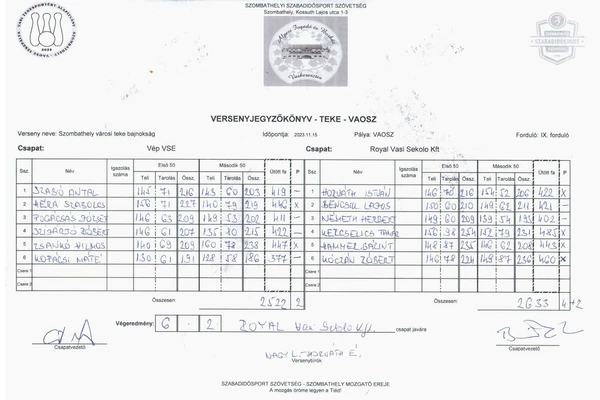 SZOMBATHELYI SZABADIDŐSPORT SZÖVETSÉG
Szombathely, Kossuth Lajos utca 1-3
Vaskeresztes
VERSENYJEGYZŐKÖNYV - TEKE - VAOSZ
Verseny neve: Szombathely városi teke bajnokság Időpontja: 2023.11.15 Pálya: VAOSZ Forduló: IX. forduló
Csapat: Vép VSE Csapat: Royal Vasi Sekolo Kft
Első 50 Második 50 Első 50 Második 50
Ssz. Név Igazolás száma Teli Tarolás Össz. Teli Tarolás Össz. Ütött fa P Ssz. Név Igazolás száma Teli Tarolás Össz. Teli Tarolás Össz. Ütött fa P
1 SZABÓ ANTAL 145 71 216 143 60 203 419 - 1 HORVÁTH ISTVÁN 146 70 216 154 52 206 422 X
2 HÉRA SZABOLCS 156 71 227 140 79 219 446 X 2 LAJOS 150 60 210 149 62 211 421 -
3 POGÁCSÁS JÓZSEF 146 63 209 149 53 202 411 - 3 NÉMETH HERBERT 149 60 209 139 54 193 402 -
4 RÓBERT 146 61 207 135 80 215 422 - 4 KERCSELICS 156 98 254 152 79 231 485 X
5 VILMOS 140 69 209 160 78 238 447 X 5 HAMMER BÁLINT 148 87 235 146 62 208 443 X
6 KOPÁCSI MÁTÉ 130 61 191 128 58 186 377 - 6 KÓCZÁN RÓBERT 146 78 224 149 87 236 460 X
Csere 1 Csere 1
Csere 2 Csere 2
Összesen: 2522 2 Összesen: 2633 4+2
Végeredmény: 6 . 2 ROYAL Vasi Sekolo Kft. csapat javára
Csapatvezető Csapatvezető
NAGY L. - HORVÁTH É.
Versenybírók
SZABADIDŐSPORT SZÖVETSÉG - SZOMBATHELY MOZGATÓ EREJE
A mozgás öröme legyen a Tiéd!